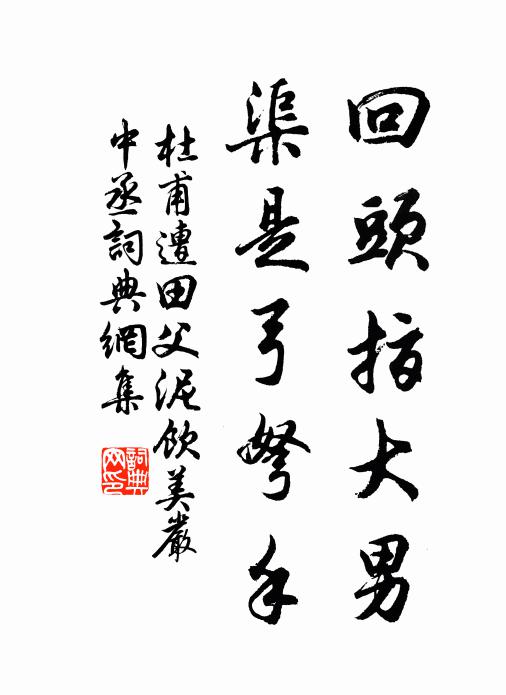 回頭指大男
渠是弓弩手
杜甫遭田父泥飲美嚴
中丞詞典網集
詞典网印